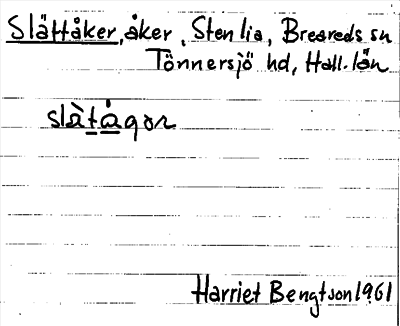 Slättåker, åker, Stenlia, Breareds sn
Tönnersjö hd, Hall. län
slàtågor
Harriet Bengtson 1961